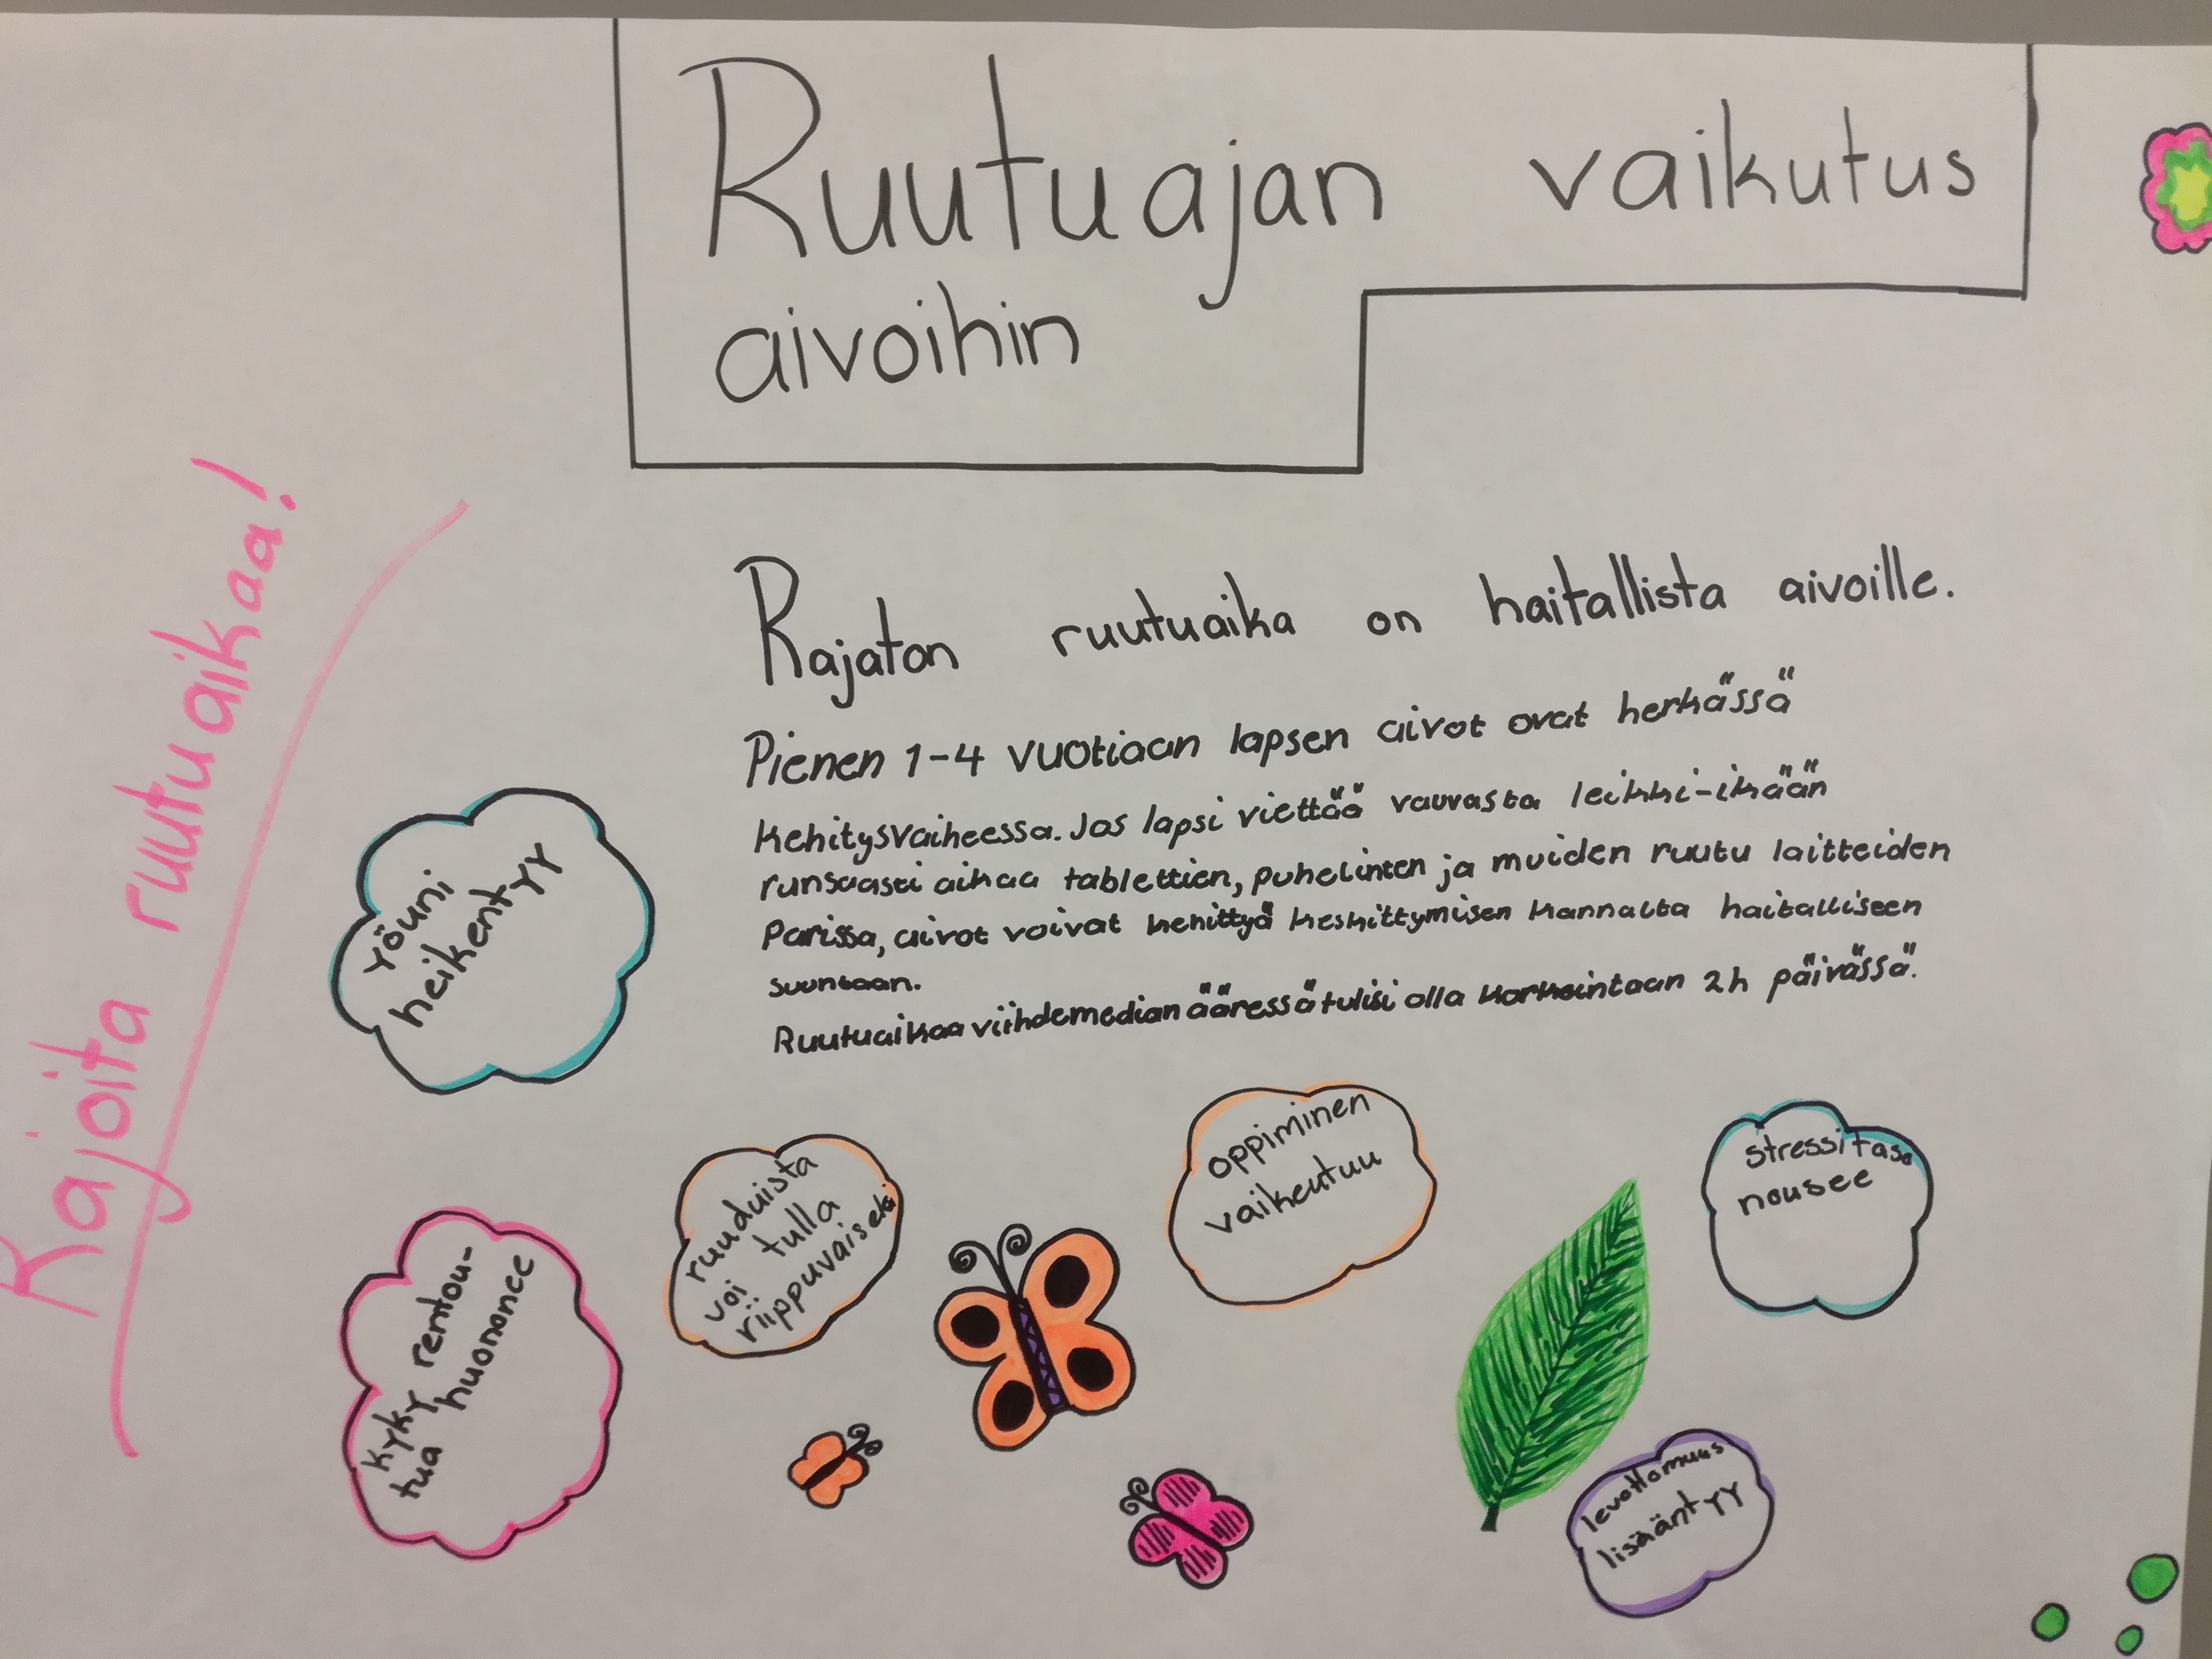 Ruutuajan vaikutus
aivoihin
Rajoita ruutuaikaa!
Rajaton ruutuaika on haitallista aivoille.
Pienen 1-4 vuotiaan lapsen aivot ovat herkässä
kehitysvaiheessa. Jos lapsi viettää vauvasta leikki-ikään
runsaasti aikaa tablettien, puhelinten ja muiden ruutu laitteiden
parissa, aivot voivat kehittyä keskittymisen kannalta haitalliseen
suuntaan.
Ruutuaikaa viihdemedian ääressä tulisi olla korkeintaan 2h päivässä.
yöuni
heikentyy
kyky rentou-
tua huononee
ruuduista
voi tulla
riippuvaiseksi
oppiminen
vaikeutuu
stressitaso
nousee
levottomuus
lisääntyy